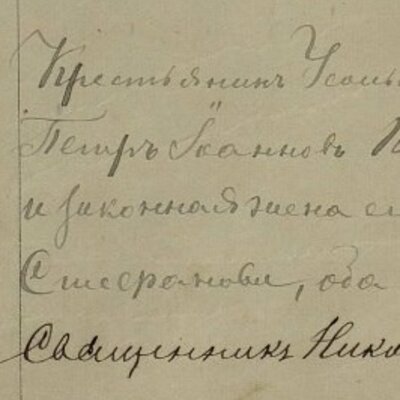 Крестьянинъ Усоль
Петръ Іоанновъ
и законная жена ег
Стефанова, оба
Священникъ Нико